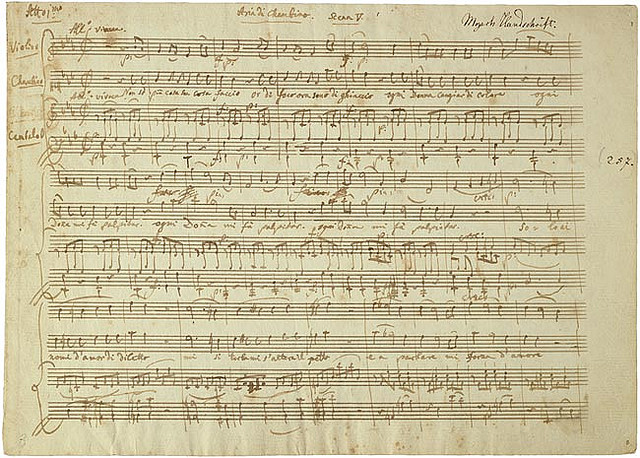 Atto 1mo Aria di Cherubino. Scen V. Mozarts Handschrift.
All.o vivace.
Violino
Cherubino
Non so più cosa son cosa faccio or di foco ora sono di ghiaccio ogni Donna cangiar di colore ogni
All.o vivace
Cembalo
257.
Donna mi fà palpitar. ogni Dona mi fà palpitar. ogni Dona mi fà palpitar. So = lo ai
nomi d'amor di diletto mi si turba mi s'altera il petto e a parlare mi sforza d'amore